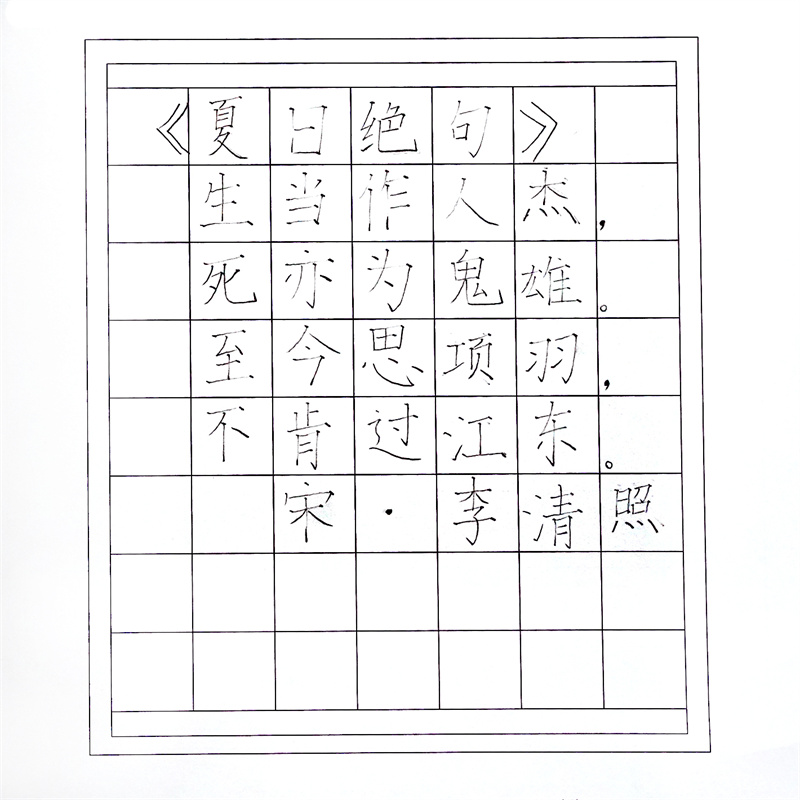 《夏日绝句》
生当作人杰，
死亦为鬼雄。
至今思项羽，
不肯过江东。
宋·李清照